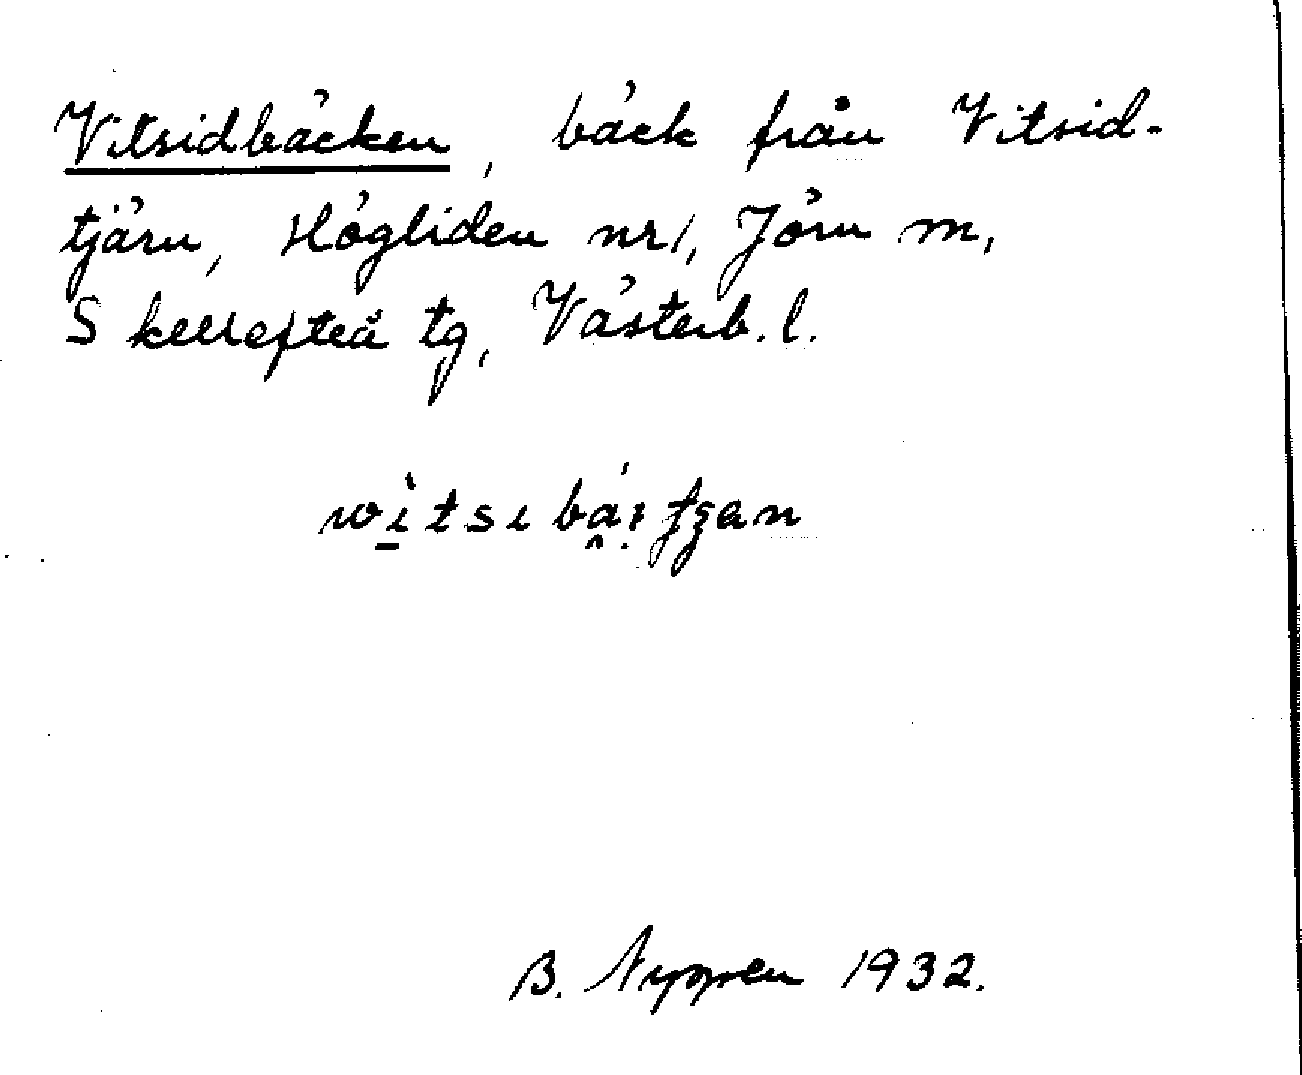 Vitsidbäcken, bäck från Vitsid-
tjärn, Högliden nr 1, Jörn m,
Skellefteå tg, Västerb. l.
B. Nygren 1932.